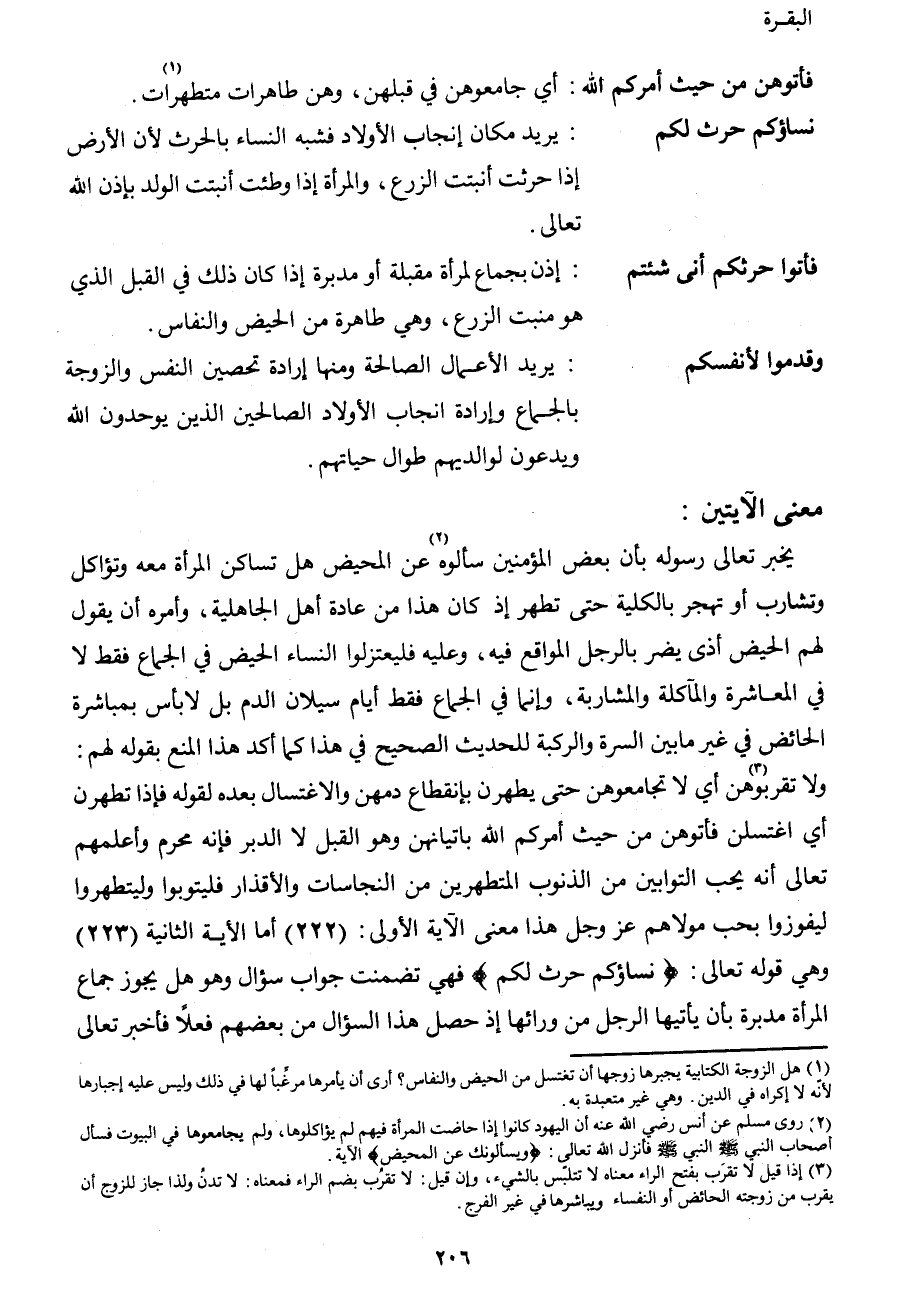 البقـرة
فأتوهن من حيث أمركم الله : أي جامعوهن في قبلهن، وهن طاهرات متطهرات.(١)
نساؤكم حرث لكم : يريد مكان إنجاب الأولاد فشبه النساء بالحرث لأن الأرض
إذا حرثت أنبتت الزرع، والمرأة إذا وطئت أنبتت الولد بإذن الله
تعالى.
فأتوا حرثكم أنى شئتم : إذن بجماع لمرأة مقبلة أو مدبرة إذا كان ذلك في القبل الذي
هو منبت الزرع، وهي طاهرة من الحيض والنفاس.
وقدموا لأنفسكم : يريد الأعـمال الصالحة ومنها إرادة تحصين النفس والزوجة
بالجـماع وإرادة انجاب الأولاد الصالحين الذين يوحدون الله
ويدعون لوالديهم طوال حياتهم.
معنى الآيتين :
يخبر تعالى رسوله بأن بعض المؤمنين سألوه(٢) عن المحيض هل تساكن المرأة معه وتؤاكل
وتشارب أو تهجر بالكلية حتى تطهر إذ كان هذا من عادة أهل الجاهلية، وأمره أن يقول
لهم الحيض أذى يضر بالرجل المواقع فيه، وعليه فليعتزلوا النساء الحيض في الجماع فقط لا
في المعـاشرة والمآكلة والمشاربة، وإنما في الجماع فقط أيام سيلان الدم بل لابأس بمباشرة
الحائض في غير مابين السرة والركبة للحديث الصحيح في هذا كما أكد هذا المنع بقوله لهم :
ولا تقربوهن(٣) أي لا تجامعوهن حتى يطهرن بإنقطاع دمهن والاغتسال بعده لقوله فإذا تطهرن
أي اغتسلن فأتوهن من حيث أمركم الله باتيانهن وهو القبل لا الدبر فإنه محرم وأعلمهم
تعالى أنه يحب التوابين من الذنوب المتطهرين من النجاسات والأقذار فليتوبوا وليتطهروا
ليفوزوا بحب مولاهم عز وجل هذا معنى الآية الأولى : (٢٢٢) أما الأيـة الثانية (٢٢٣)
وهي قوله تعالى : ﴿ نساؤكم حرث لكم ﴾ فهي تضمنت جواب سؤال وهو هل يجوز جماع
المرأة مدبرة بأن يأتيها الرجل من ورائها إذ حصل هذا السؤال من بعضهم فعلاً فأخبر تعالى
(١) هل الزوجة الكتابية يجبرها زوجها أن تغتسل من الحيض والنفاس؟ أرى أن يأمرها مرغِّباً لها في ذلك وليس عليه إجبارها
لأنه لا إكراه في الدين. وهي غير متعبدة به.
(٢) روى مسلم عن أنس رضي الله عنه أن اليهود كانوا إذا حاضت المرأة فيهم لم يؤاكلوها، ولم يجامعوها في البيوت فسأل
أصحاب النبي ﷺ النبي ﷺ فأنزل الله تعالى : ﴿ويسألونك عن المحيض﴾ الآية.
(٣) إذا قيل لا تقرَب بفتح الراء معناه لا تتلبّس بالشيء، وإن قيل : لا تقرُب بضم الراء فمعناه : لا تدنُ ولذا جاز للزوج أن
يقرب من زوجته الحائض أو النفساء ويباشرها في غير الفرج.
٢٠٦